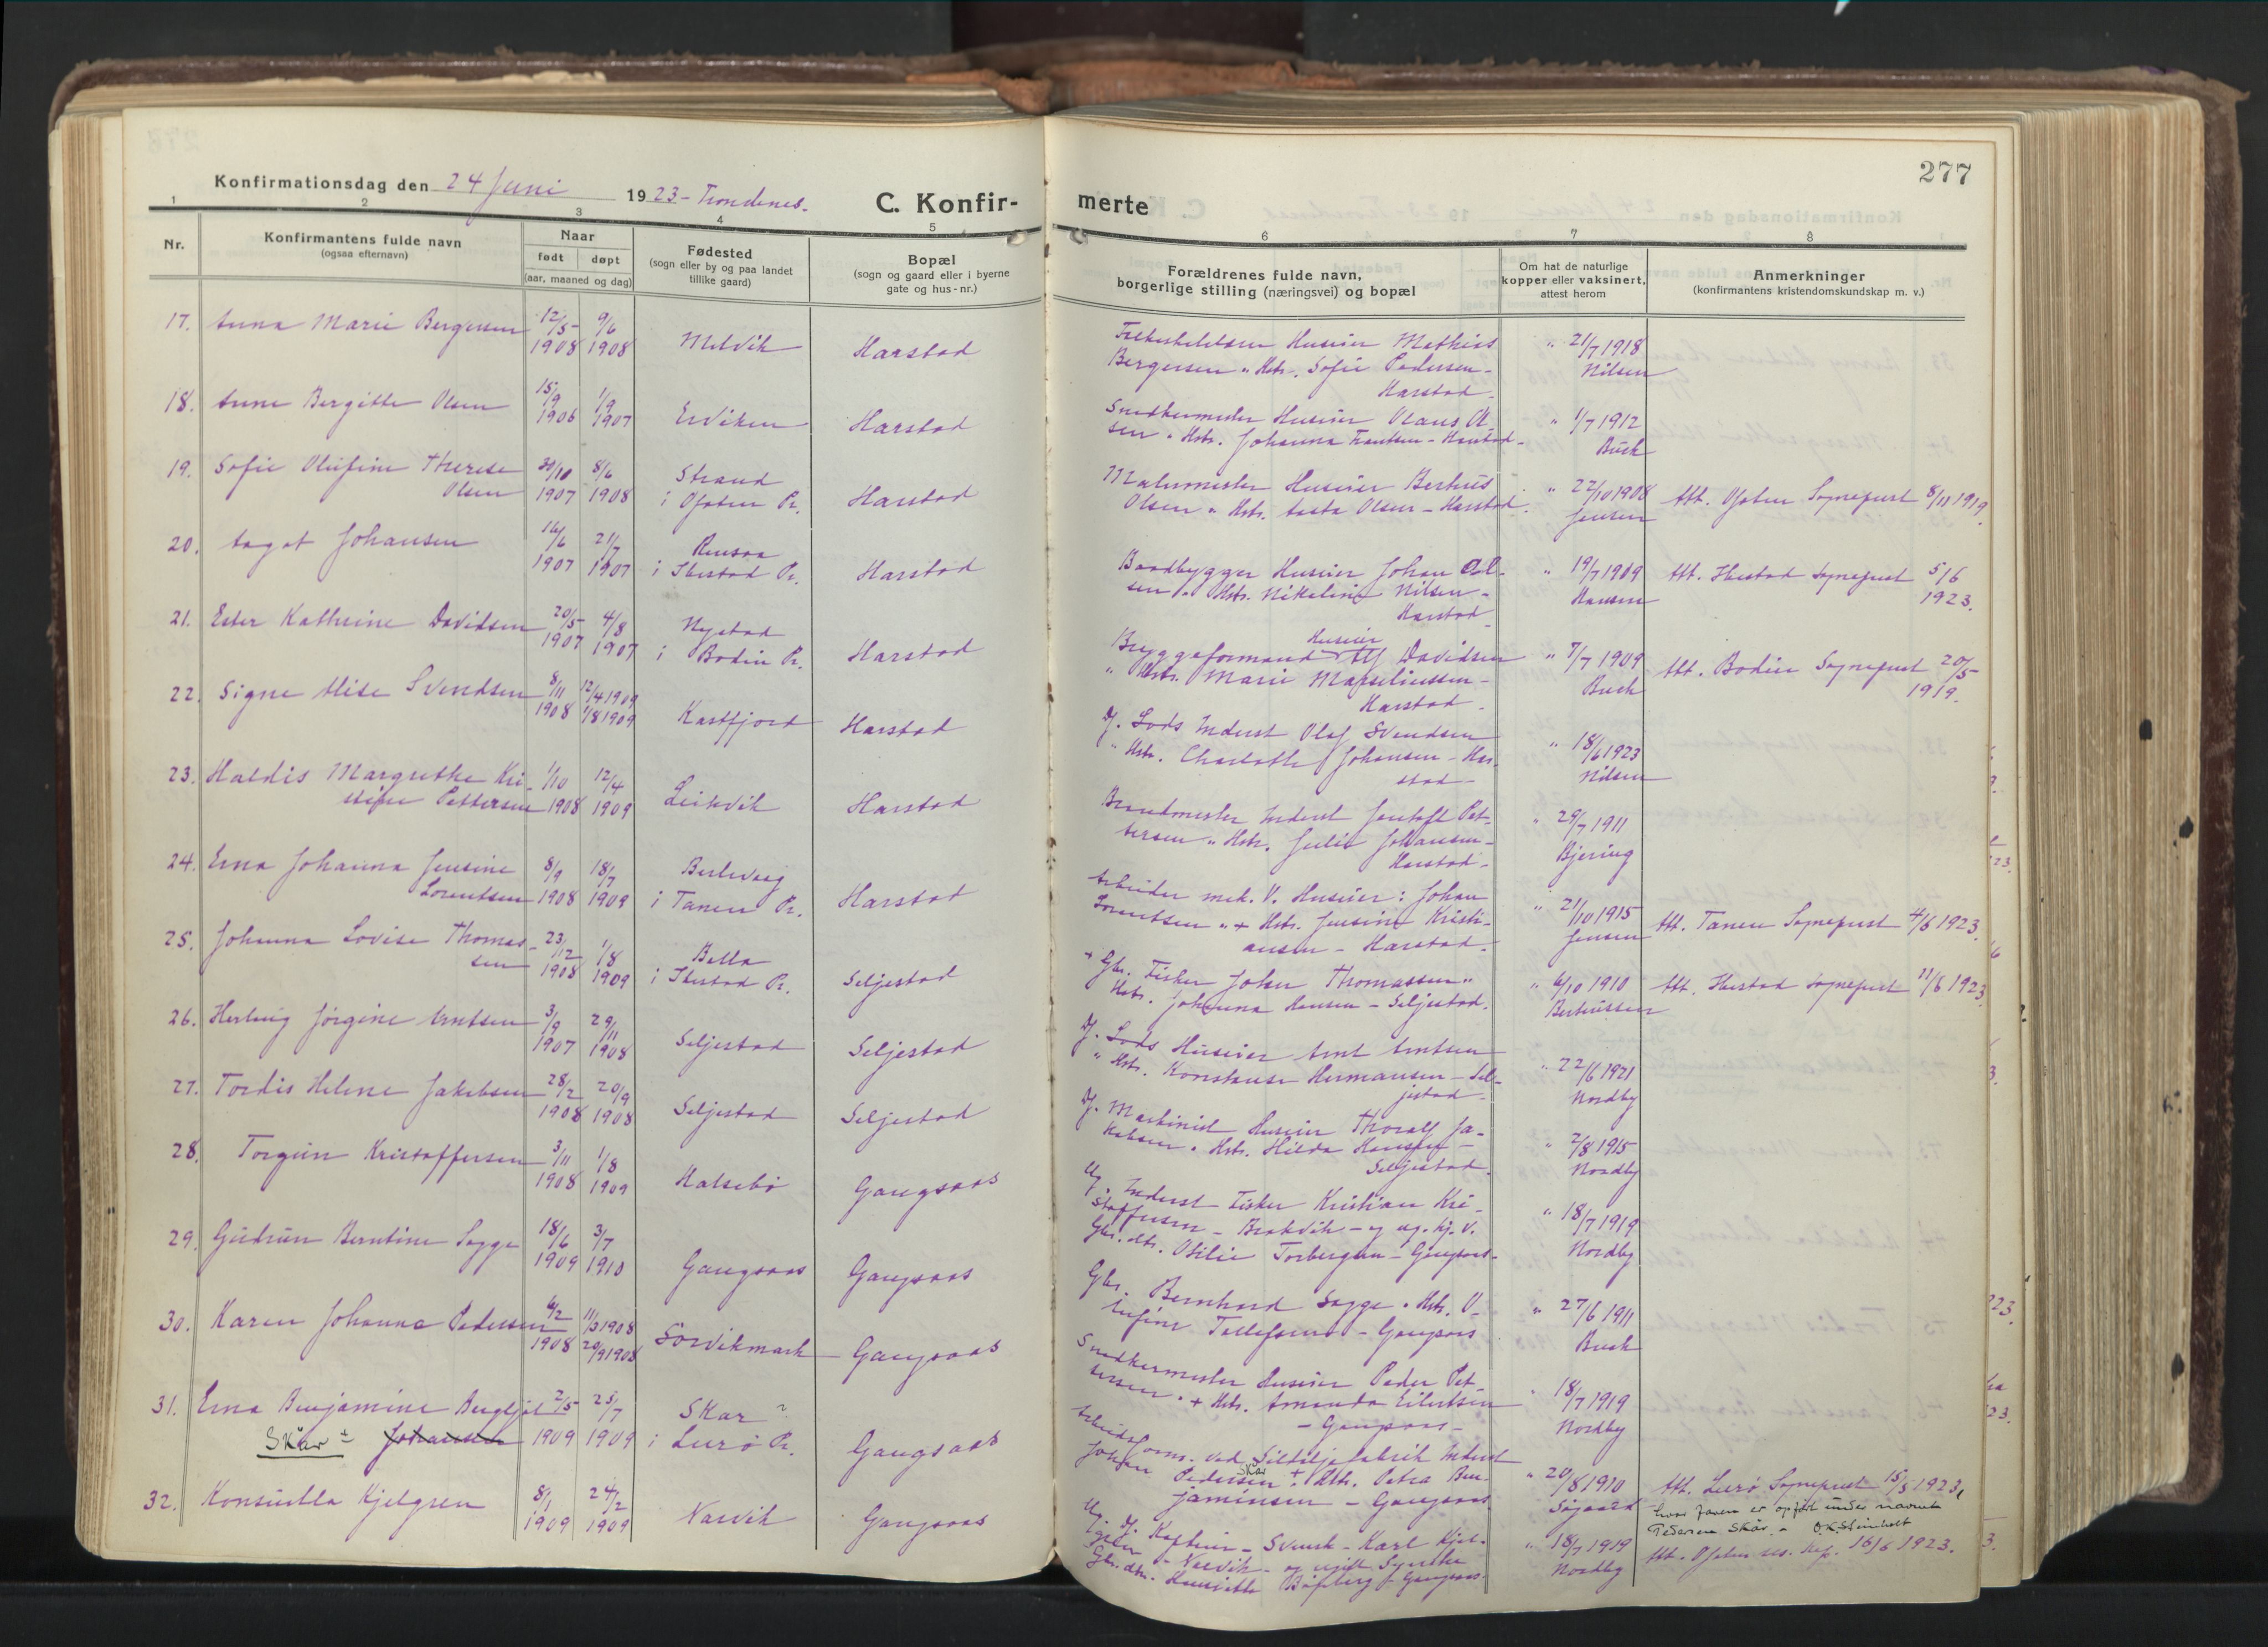 277
Konfirmationsdag den 24 Juni 1923 - Trondenes.
C. Konfir-
merte
1 2 3 4 5 6 7 8
Nr.
Konfirmantens fulde navn
(ogsaa efternavn)
Naar
født døpt
(aar, maaned og dag)
Fødested
(sogn eller by og paa landet
tillike gaard)
Bopæl
(sogn og gaard eller i byerne
gate og hus-nr.)
Forældrenes fulde navn,
borgerlige stilling (næringsvei) og bopæl
Om hat de naturlige
kopper eller vaksinert,
attest herom
Anmerkninger
(konfirmantens kristendomskundskap m. v.)
17. Anna Marie Bergersen 12/5 1908 9/6 1908 Melvik Harstad
Huseier Mathias
Bergersen " Hstr. Sofie Pedersen -
Harstad.
" 21/7 1918
Nilsen
18. Anne Bergitte Olsen 15/9 1906 1/9 1907 Erviken Harstad
Snedkermester Huseier Olaus Ol-
sen " Hstr. Johanna Frantsen - Harstad -
" 1/7 1912
Buch
19. Sofie Olufine Therese
Olsen 30/10 1907 8/6 1908 Strand
i Ofoten Pr. Harstad
Malermester Huseier Berteus
Olsen " Hstr. Aasta Olsen - Harstad.
" 22/10 1908
Jensen
Att. Ofoten Sogneprest 8/11 1919.
20. Aagot Johansen 16/6 1907 21/7 1907 Rensaa
i Ibestad Pr. Harstad
Baadbygger Huseier Johan Ol-
sen " Hstr. Nikoline Nilsen -
Harstad
" 19/7 1909
Hansen
Att. Ibestad Sogneprest 5/6
1923.
21. Ester Kathrine Davidsen 20/5 1907 4/8 1907 Nystad
i Bodin Pr. Harstad
Huseier
Bryggeformand Alf Davidsen
" Hstr. Marie Marseliussen -
Harstad.
" 7/7 1909
Buch
Att. Bodin Sogneprest 20/5
1919.
22. Signe Alise Svendsen 8/11 1908 12/4 1909 1/8 1909 Kastfjord Harstad
Dj. Lods Inderst Olaf Svendsen
" Hstr. Charlotte Johansen - Har-
stad -
" 18/6 1923
Nilsen
23. Haldis Margrethe Kri-
stine Pettersen 1/10 1908 12/4 1909 Leikvik Harstad
Brandmester Inderst Jentoft Pet-
tersen " Hstr. Julie Johansen -
Harstad -
" 29/7 1911
Bjering
24. Erna Johanna Jensine
Lorentsen 8/9 1908 18/7 1909 Berlevaag
i Tanen Pr. Harstad
Arbeider mek. V. Huseier: Johan
Lorentsen " + Hstr. Jensine Kristi-
ansen - Harstad -
" 21/10 1915
Jensen
Att. Tanen Sogneprest 4/6 1923.
25. Johanna Lovise Thomas-
sen 23/12 1908 1/8 1909 Bolla
i Ibestad Pr. Seljestad
+ Gbr. Fisker Johan Thomassen "
Hstr. Johanna Hansen - Seljestad.
" 6/10 1910
Berteussen
Att. Ibestad Sogneprest 11/6 1923.
26. Herborg Jørgine Arntsen 3/9 1907 29/11 1908 Seljestad Seljestad
Dj. Lods Huseier Arnt Arntsen
" Hstr. Konstanse Hermansen - Sel-
jestad -
" 22/6 1921
Nordby
27. Tordis Helene Jakobsen 28/2 1908 20/9 1908 Seljestad Seljestad
Dj. Maskinist Huseier Thoralf Ja-
kobsen " Hstr. Hilda Hansen -
Seljestad.
" 2/8 1915
Nordby
28. Torgun Kristoffersen 3/11 1908 1/8 1909 Halsebø Gangsaas
Ug. Inderst Fisker Kristian Kri-
stoffersen - Brokvik - og ug. hj. v.
Gbr. dtr. Otilie Torbergsen - Gangsaas -
" 18/7 1919
Nordby
29. Gudrun Berntine Sagge 18/6 1909 3/7 1910 Gangsaas Gangsaas
Gbr. Bernhard Sagge " Hstr. O-
lufine Tollefsen - Gangsaas
" 27/6 1911
Buch
30. Karen Johanna Pedersen 6/2 1908 11/3 1908 20/9 1908 Sørvikmark Gangsaas
Snedkermester Huseier Peder Pet-
tersen " + Hstr. Amanda Eilertsen
- Gangsaas -
" 18/7 1919
Nordby
31. Erna Benjamine Bergljot 2/5 1909 25/7 1909 Skar ?
Skår + Johansen i Lurø Pr. Gangsaas
Arbeidsform. ved Sildoljefabrik Inderst
Skår
Johan Pedersen + Hstr. Petra Ben-
jaminsen - Gangsaas
" 20/8 1910
Søgaard
Att. Lurø Sogneprest 15/5 1923,
hvor faren er opført under navnet
Pedersen Skår. - O.K. Steinholt
32. Konsuella Kjelgren 8/1 1909 24/2 1909 Narvik Gangsaas
Ug. Dj. Kaptein - Svensk - Karl Kjel-
gren - Narvik - og ugift Syerske
Gbr. dtr. Henriette Bergeborg - Gangsaas -
" 18/7 1919
Nordby
Att. Ofoten res. kap. 16/6 1923.